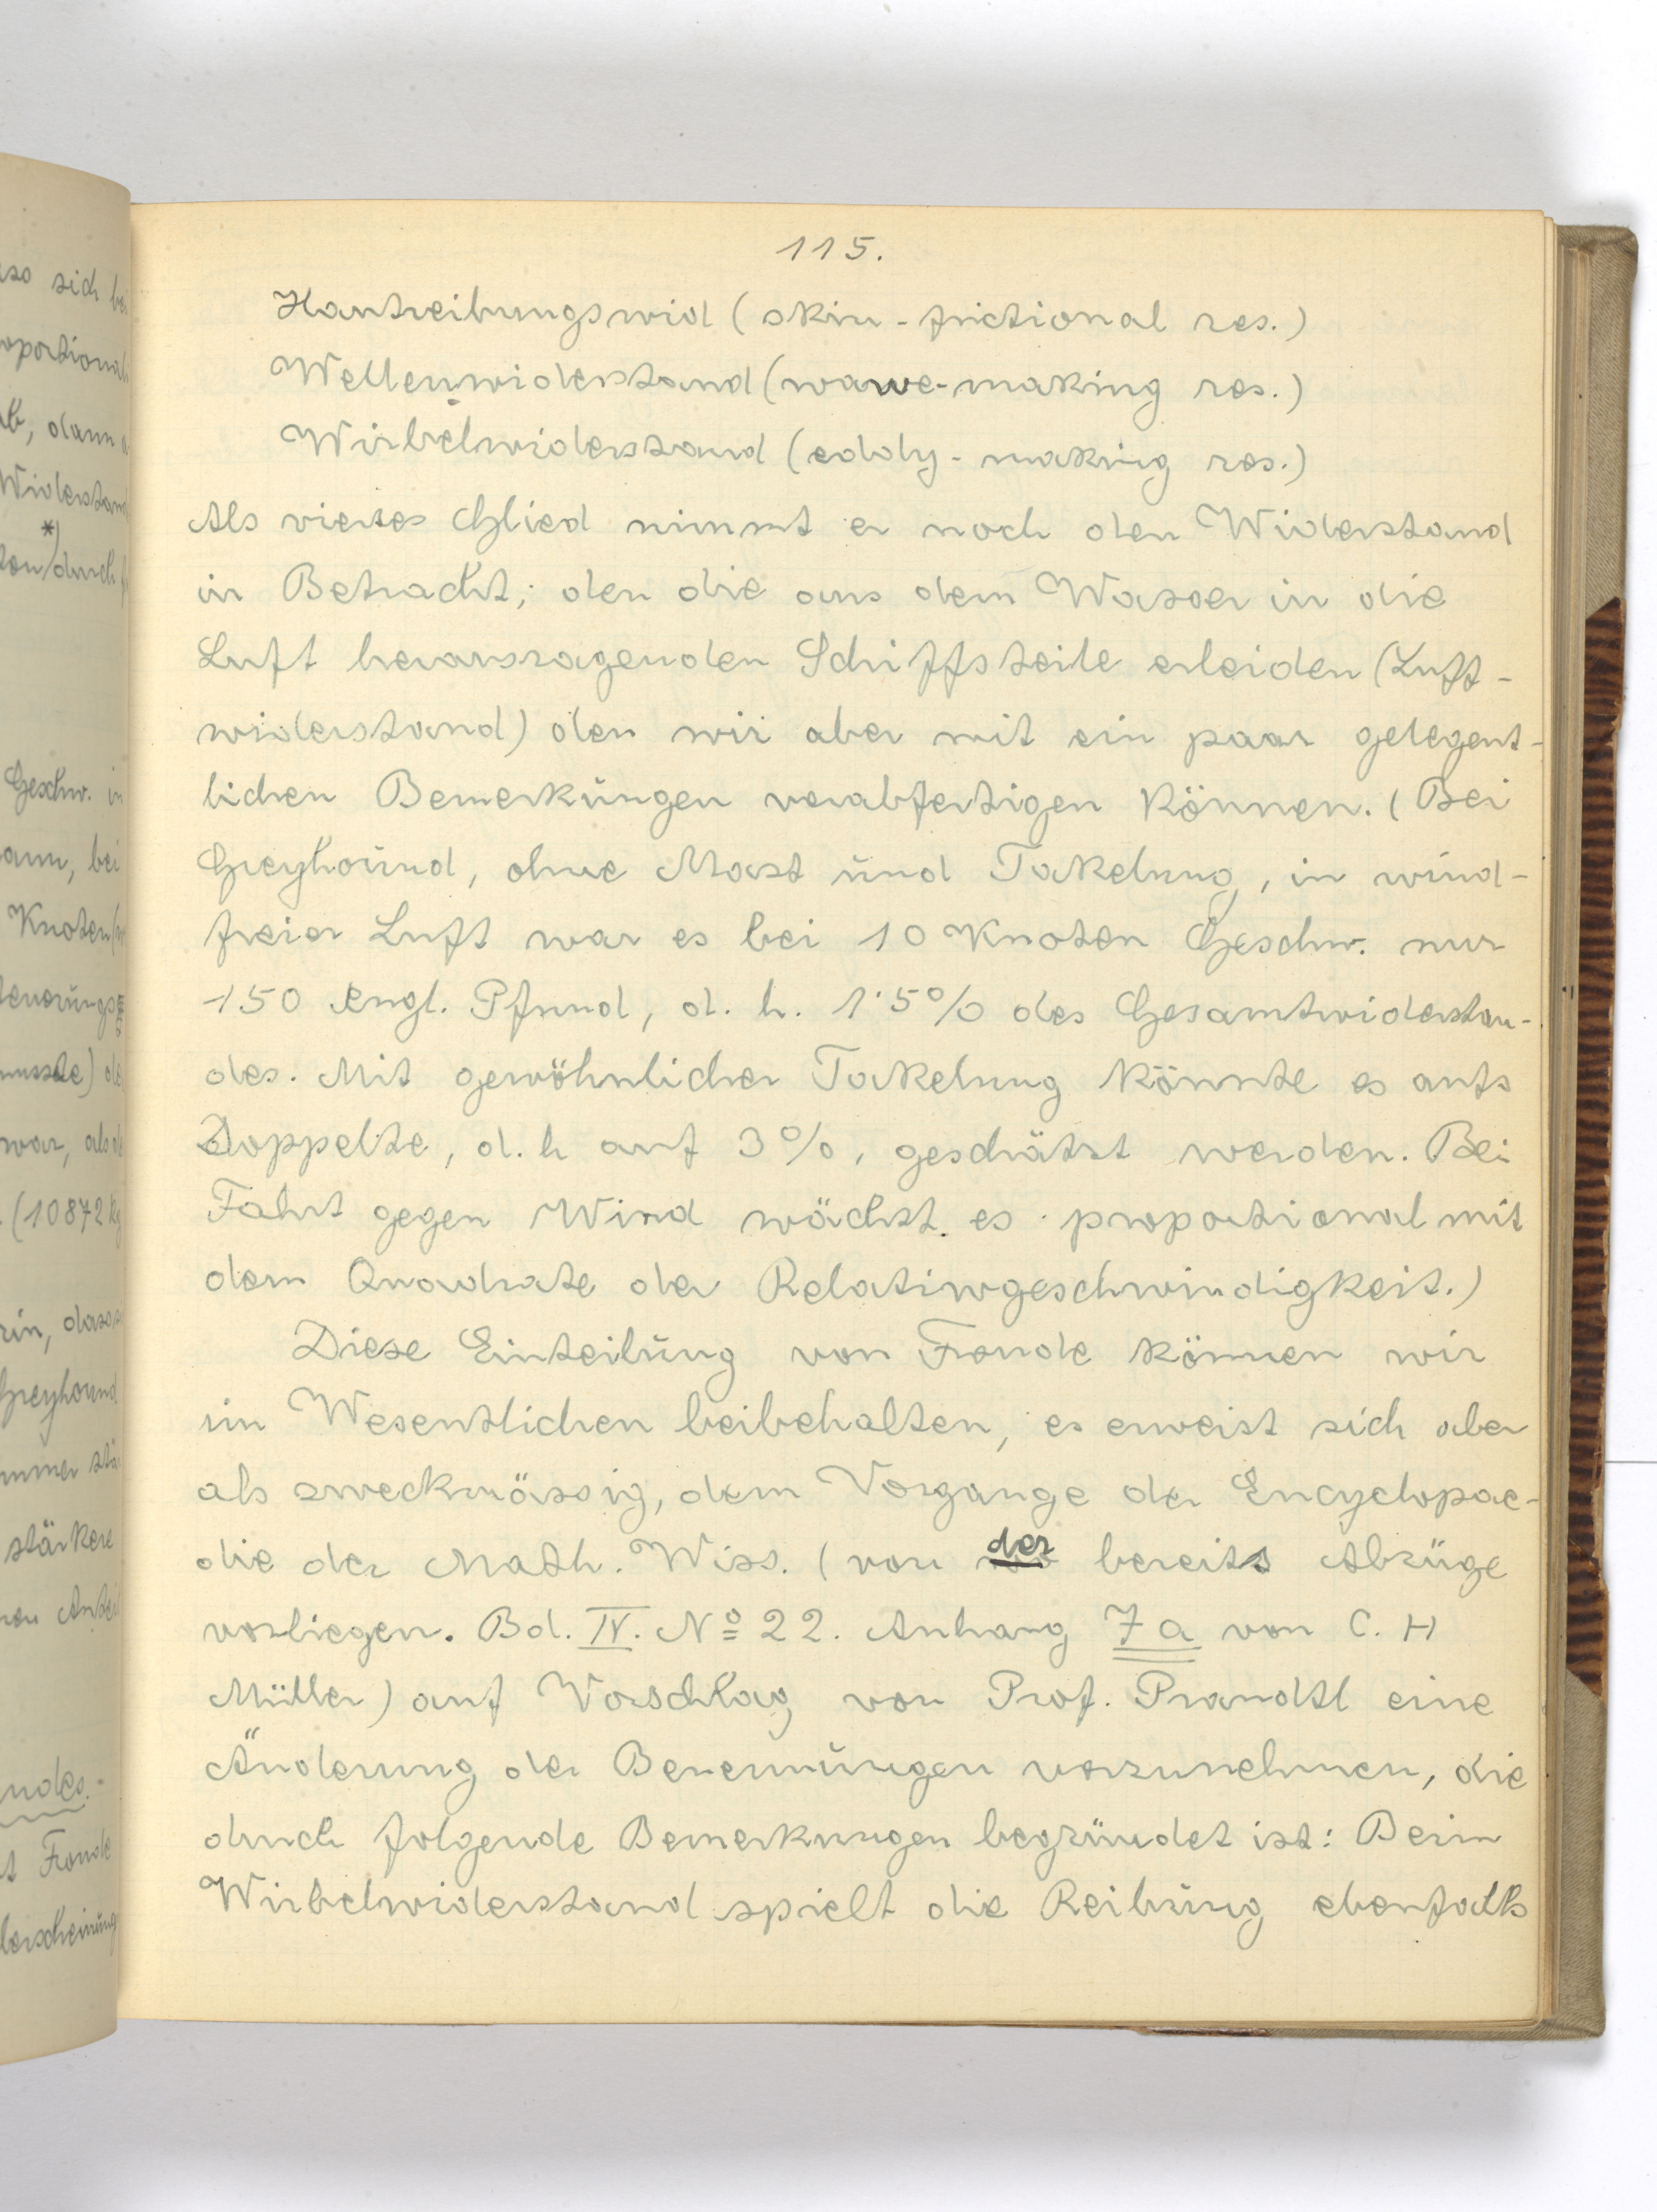 115.
Hautreibungswid (skin-frictional res.)
Wellenwiderstand (wawe-making res.)
Wirbelwiderstand (eddy-making res.)
Als viertes Glied nimmt er noch den Widerstand
in Betracht; den die aus dem Wasser in die
Luft herausragenden Schiffsteile erleiden (Luft-
widerstand) den wir aber mit ein paar gelegent-
lichen Bemerkungen verabfertigen können. (Bei
Greyhound, ohne Mast und Takelung, in wind-
freier Luft war es bei 10 Knoten Geschw. nur
150 engl. Pfund, d. h. 1·5% des Gesamtwiderstan-
des. Mit gewöhnlicher Takelung könnte es aufs
Doppelte, d. h auf 3%, geschätzt werden. Bei
Fahrt gegen Wind wächst es proportional mit
dem Quadrate der Relativgeschwindigkeit.)
Diese Einteilung von Froude können wir
im Wesentlichen beibehalten, es erweist sich aber
als zweckmässig, dem Vorgange der Encyclopae-
die der Math. Wiss. (von der bereits Abzüge
vorliegen. Bd. IV. No 22. Anhang 7a von C. H
Müller) auf Vorschlag von Prof. Prandtl eine
Änderung der Benennungen vorzunehmen, die
durch folgende Bemerkungen begründet ist: Beim
Wirbelwiderstand spielt die Reibung ebenfalls
sich bei
Widerstand
*)
durch
Geschw. in
bei
Knoten
war, als
(10872 kg
Greyhound
stärkere
Froude